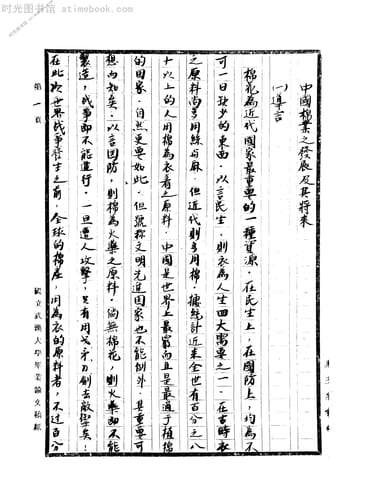 时光图书馆 atimebook.com
中國棉業之發展及其將來
(一)導言
棉花為近代國家最重要的一種資源．在民生上，在國防上，均為不
可一日缺少的東西．以言民生，則衣為人生四大需要之一．在古時衣
之原料尚多用絲与麻．但近代則多用棉．據統計近來全世有百分之八
十以上的人用棉為衣着之原料．中國是世界上最窮而且是最適于植棉
的国家．自然更要如此．但號称文明先進国家也不能例外．其重要可
想而知矣．以言国防，則棉為火藥之原料．倘無棉花，則火藥即不能
製造，戰爭即不能進行．一旦遭人攻擊，只有用弋矛刀劍去敵擊矣！
在此次世界战爭發生之前．全球的棉產，用為衣的原料者，不过百分
第一頁
國立武漢大學畢業論文稿紙